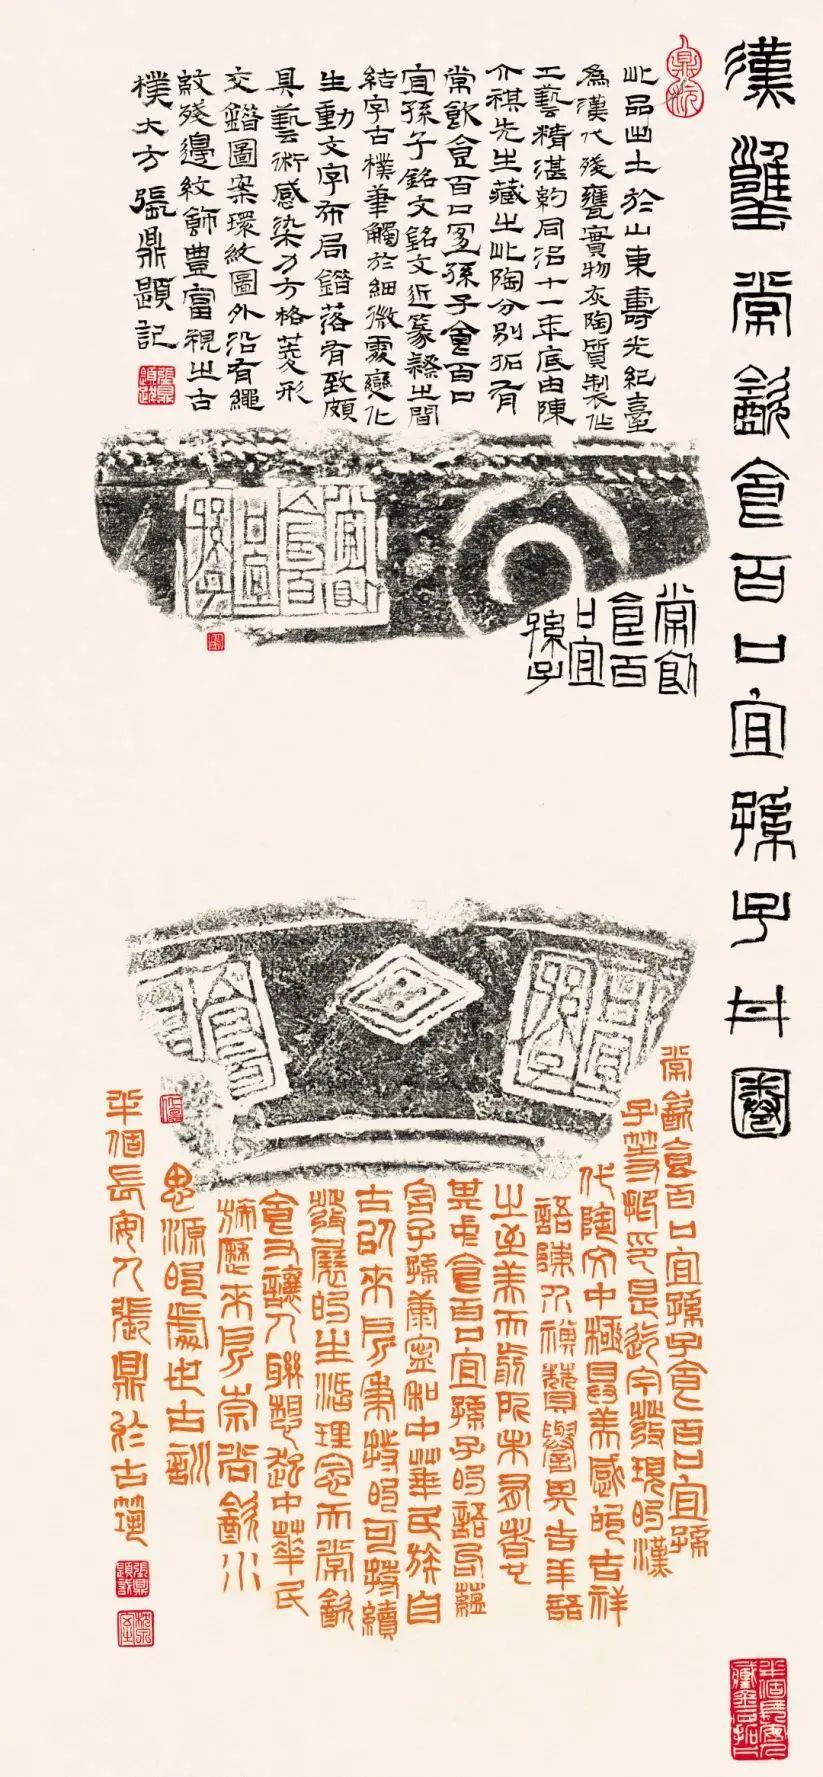 漢罋常飲食百口宜孫子
此品出土於山東壽光紀臺
為漢代殘甕實物灰陶質製作
工藝精湛約同治十一年底由陳
介祺先生藏之此陶分別拓有
常飲食百口宜孫子食百口
宜孫子銘文銘文近篆隸之間
結字古樸筆觸於細微處變化
生動文字布局錯落有致頗
具藝術感染力方格菱形
交錯圖案環紋圖外沿有繩
紋殘邊紋飾豐富視之古
樸大方張鼎題記
常飲
食百
口宜
孫子
常飲
食百
口宜
孫子
食百
口宜
孫子
常飲食百口宜孫子食百口宜孫
子等是迄今發現的漢
代陶文中極具美感的吉祥
語陳介祺贊譽為吉羊語
之至美而前所未有者也
其中食百口宜孫子的語句蘊
含子孫康寧和中華民族自
古以來所秉持的可持續
發展的生活理念而常飲
食又讓人聯想起中華民
族歷來所崇尚飲水
思源的處世古訓
半個長安人張鼎於古